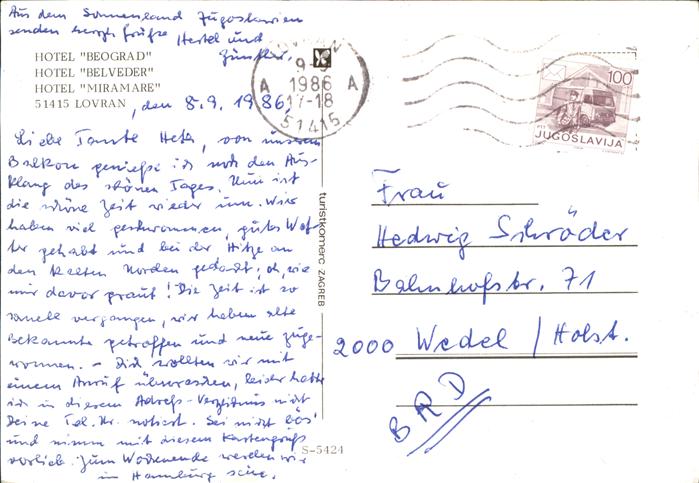 Aus dem Sonnenland Jugoslawien
senden herzl. Grüße Hertel und
Günther.
HOTEL "BEOGRAD"
HOTEL "BELVEDER"
HOTEL "MIRAMARE"
51415 LOVRAN, den 8.9.1986,
Liebe Tante Hete, von unserem
Balkon genieße ich noch den Aus-
klang des schönen Tages. Nun ist
die schöne Zeit wieder um. Wir
haben viel geschwommen, gutes Wet-
ter gehabt und bei der Hitze an
den kalten Norden gedacht; oh, wie
mir davor graut! Die Zeit ist so
schnell vergangen, wir haben alte
Bekannte getroffen und neue hinzuge-
wonnen. - Dich wollten wir mit
einem Anruf überraschen, leider hatte
ich in diesem Adreß-Verzeichnis nicht
Deine Tel. Nr. notiert. Sei nicht bös'
und nimm mit diesem Kartengruß
vorlieb. Zum Wochenende werden wir
in Hamburg sein.
turistkomerc ZAGREB
S-5424
LOVRAN
9-9
A 1986 A
17-18
51415
100
PTT
JUGOSLAVIJA
Frau
Hedwig Schröder
Bahnhofstr. 71
2000 Wedel / Holst.
BRD